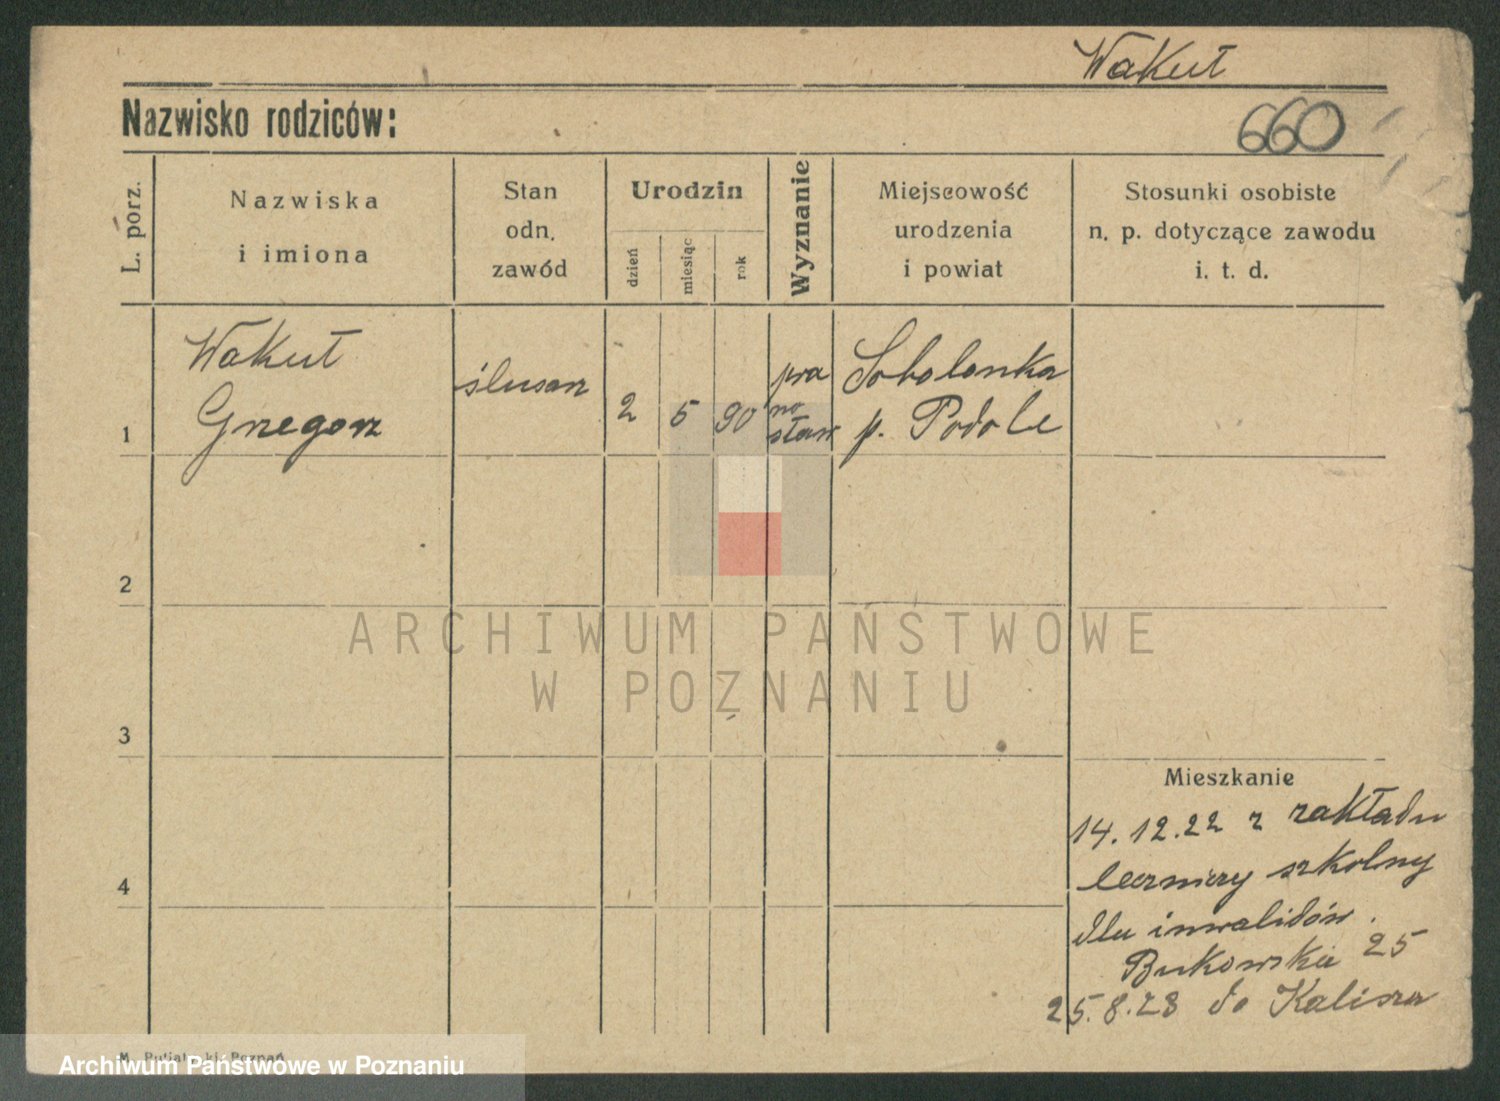 Wakuł
Nazwisko rodziców:
660
L. porz.
Nazwiska
i imiona
Stan
odn.
zawód
Urodzin
dzień
miesiąc
rok
Wyznanie
Miejscowość
urodzenia
i powiat
Stosunki osobiste
n. p. dotyczące zawodu
i. t. d.
1
Wakuł
Grzegorz
ślusarz
2
5
90
pra
wo
sław
Sobolonka
p. Podole
2
3
4
ARCHIWUM PAŃSTWOWE
W POZNANIU
Mieszkanie
14.12.22 z zakładu
leczniczy szkolny
dla inwalidów.
Bukowska 25
25.8.23 do Kalisza
M. Putiatycki, Poznań
Archiwum Państwowe w Poznaniu